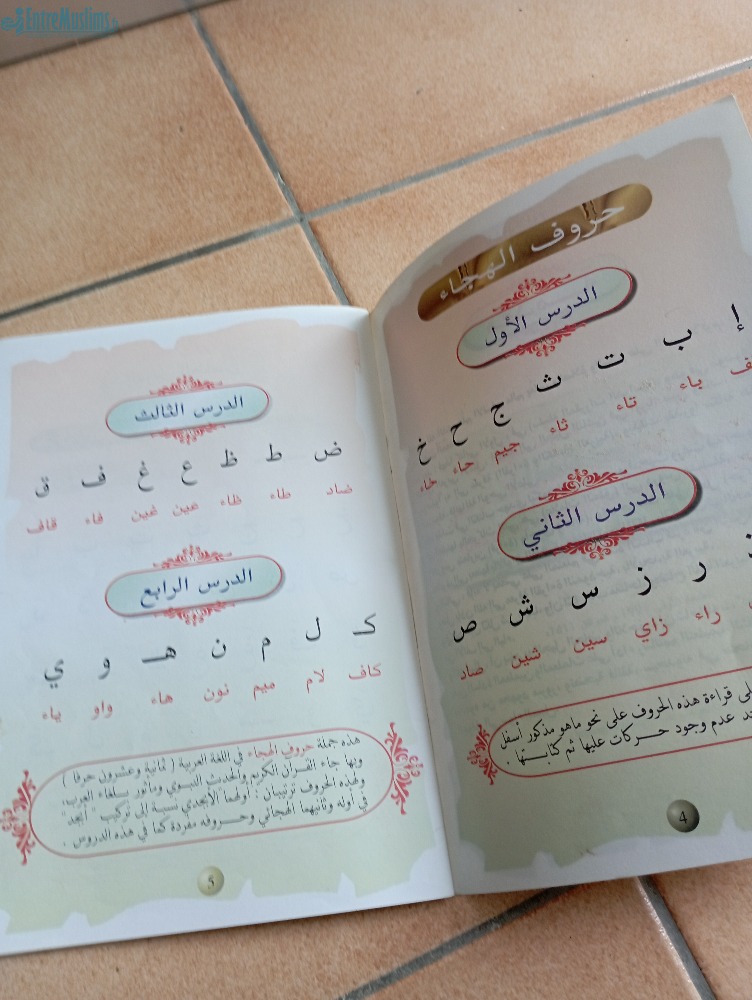 EntreMuslims
حروف الهجاء
الدرس الأول
إ ب ت ث ج ح خ
باء تاء ثاء جيم حاء خاء
الدرس الثاني
ر ز س ش ص
راء زاي سين شين صاد
قراءة هذه الحروف على نحو ماهو مذكور أسفل
عدم وجود حركات عليها ثم كتابتها .
4
الدرس الثالث
ض ط ظ ع غ ف ق
ضاد طاء ظاء عين غين فاء قاف
الدرس الرابع
كـ ل م ن هـ و ي
كاف لام ميم نون هاء واو ياء
هذه جملة حروف الهجاء في اللغة العربية ( ثمانية وعشرون حرفا )
وبها جاء القرآن الكريم والحديث النبوي ومأثور بلغاء العرب،
ولهذه الحروف ترتيبان : أولهما الأبجدي نسبة إلى تركيب " أبجد "
في أوله وثانيهما الهجائي وحروفه مفردة كما في هذه الدروس .